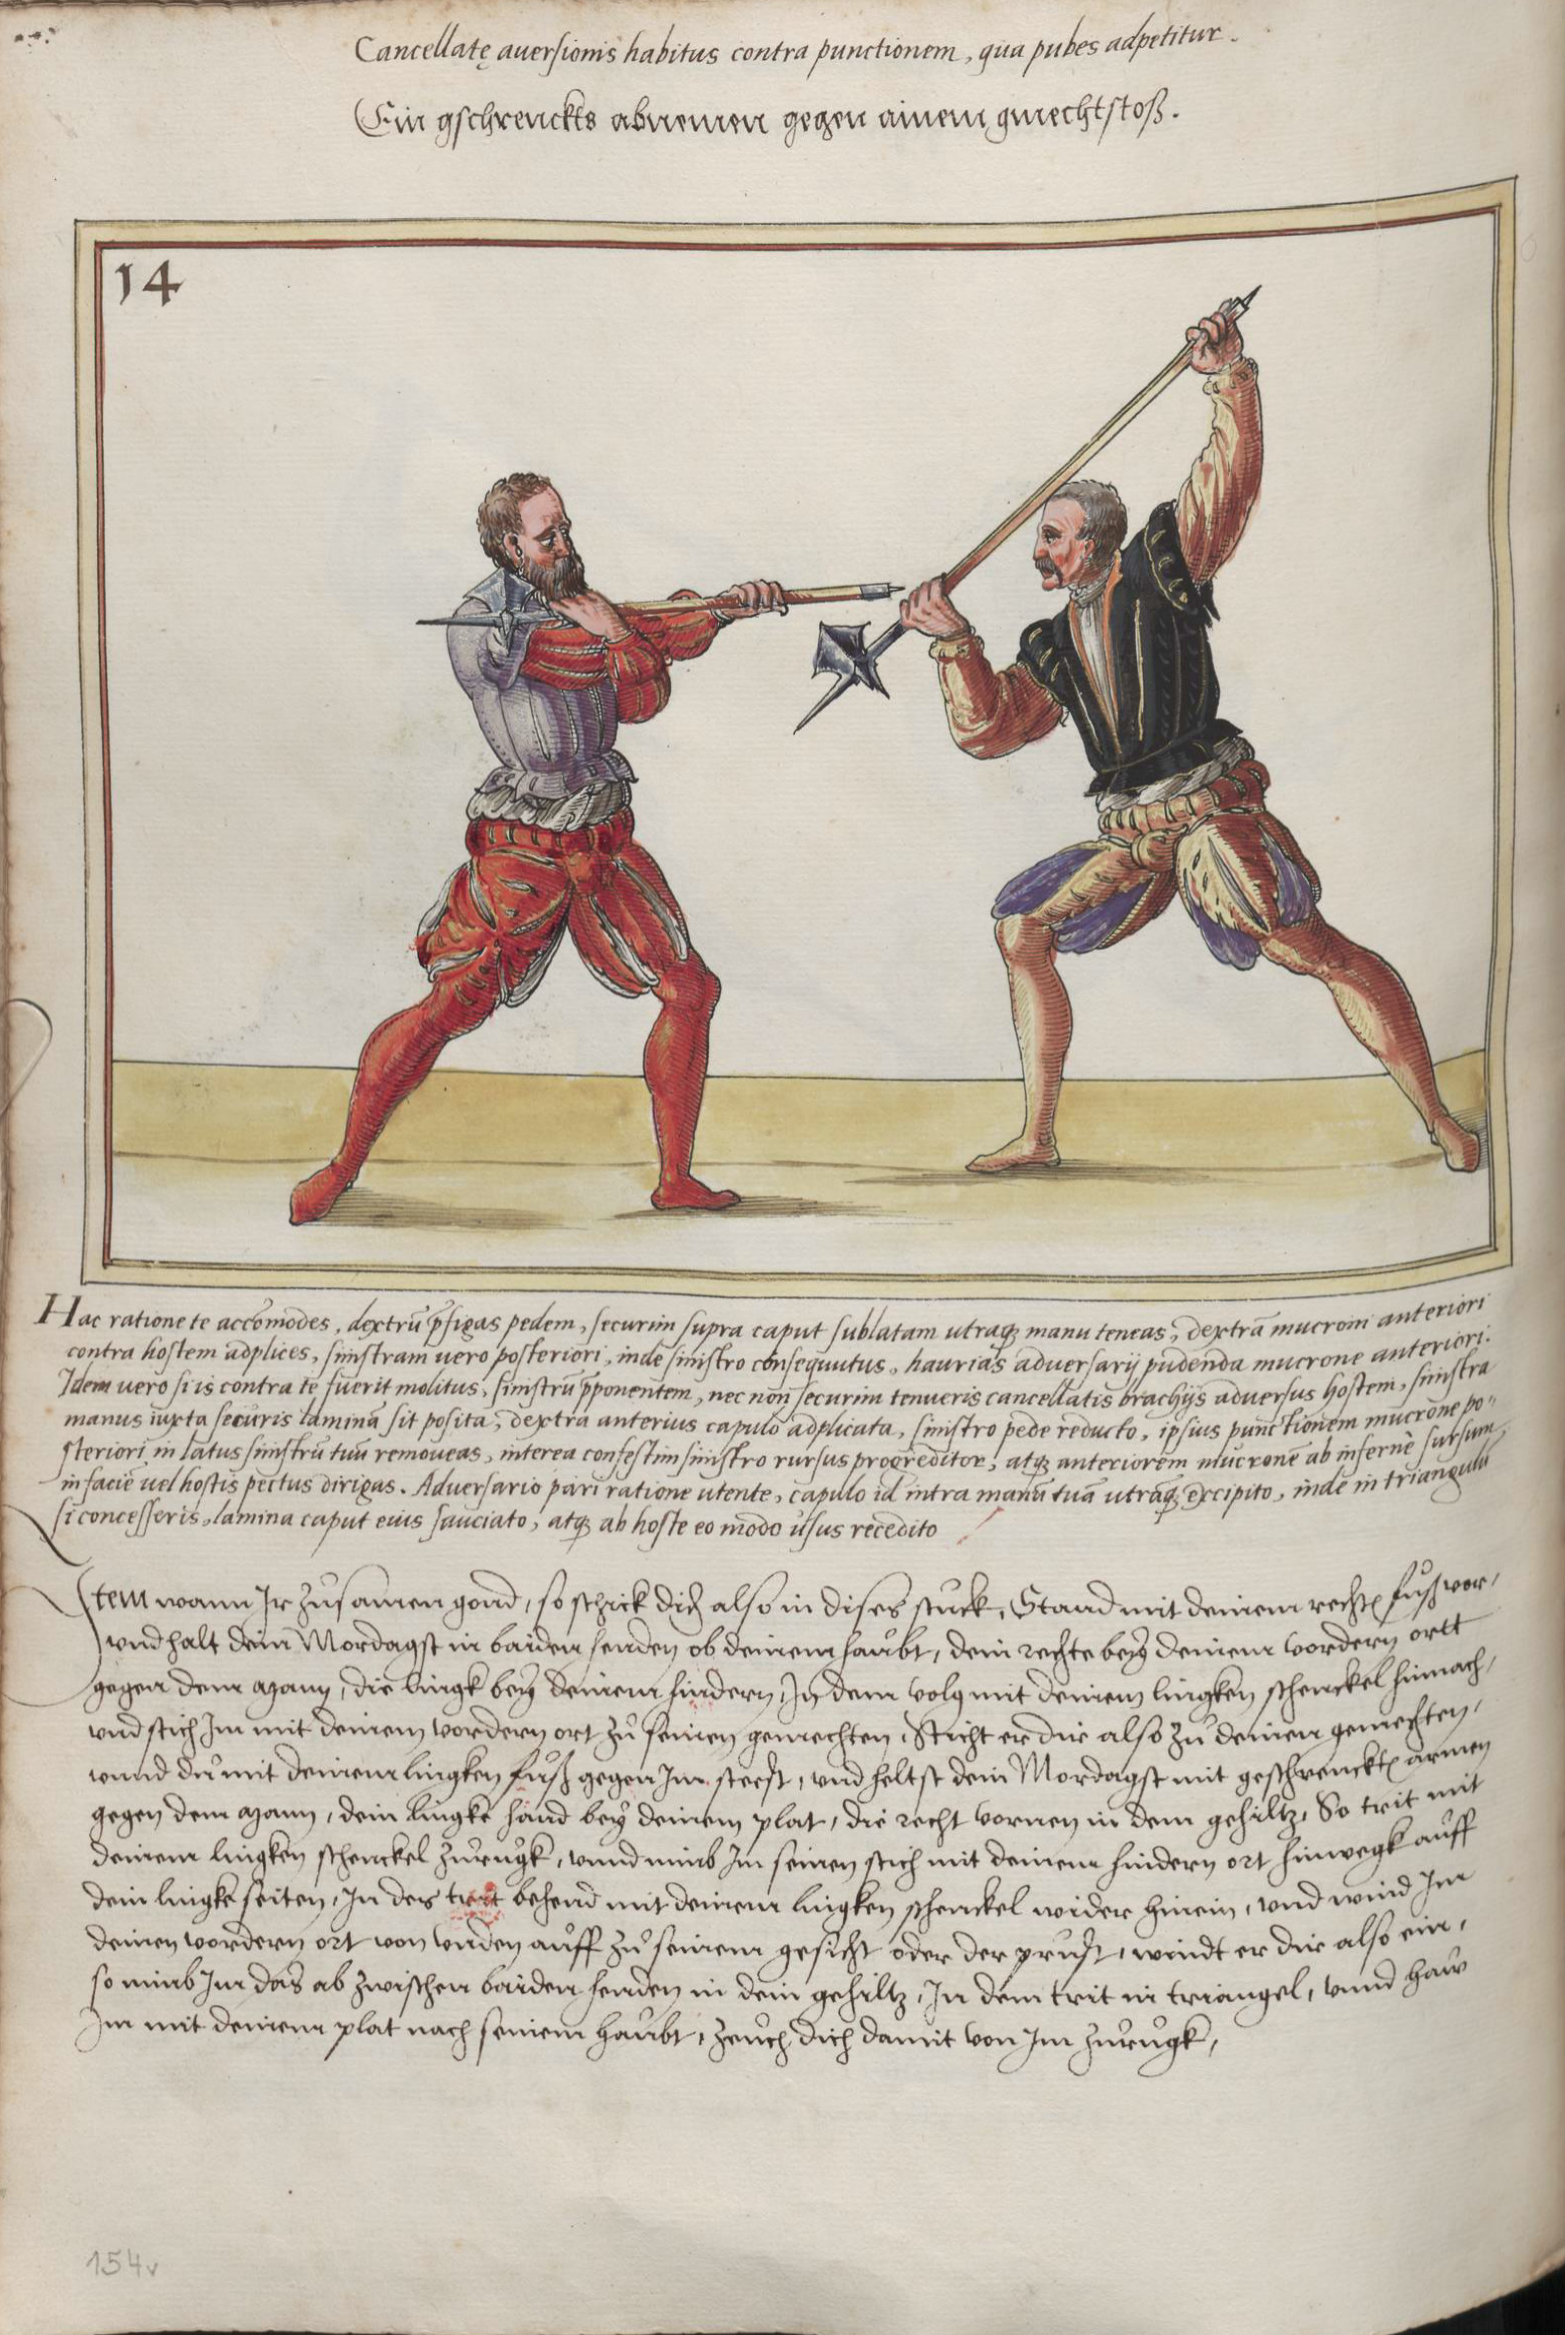 Cancellatę auersionis habitus contra punctionem, qua pubes adpetitur.
Ein gschrenckts abnemen gegen ainem gmechtstoß.
14
Hac ratione te accõmodes, dextrũ p̃figas pedem, securim supra caput sublatam utraq; manu teneas, dextrã mucroni anteriori
contra hostem adplices, sinistram uero posteriori, inde sinistro consequutus, haurias aduersarij pudenda mucrone anteriori.
Idem uero si is contra te fuerit molitus, sinistrũ p̃ponentem, nec non securim tenueris cancellatis brachijs aduersus hostem, sinistra
manus iuxta securis laminã sit posita, dextra anterius capulo adplicata, sinistro pede reducto, ipsius punctionem mucrone po-
steriori in latus sinistrũ tuũ remoueas, interea confestim sinistro rursus progreditor, atq; anteriorem mucronẽ ab infernè sursum
in faciẽ uel hostis pectus dirigas. Aduersario pari ratione utente, capulo id intra manũ tuã utrãq; excipito, inde in triangulũ
si concesseris, lamina caput eius sauciato, atq; ab hoste eo modo usus recedito
Item wann Ir zůsamen gond, so schick dich also in dises stuck, Stand mit deinem rechtẽ fuß vor,
vnd halt dein Mordagst in baiden henden ob deinem haubt, dein rechte bey deinem vordern ortt
gegen dem mann, die lingk bey deinem hindern, In dem volg mit deinem lingken schenckel hinnach,
vnd stich Im mit deinem vordern ort zů seinen gemechten, Sticht er dir also zů deinen gemechten,
vnnd du mit deinem lingken fuß gegen Im steest, vnd heltst dein Mordagst mit geschrencktẽ armen
gegen dem mann, dein lingke hand bey deinem plat, die recht vornen in dem gehiltz, So trit mit
deinem lingken schenckel zůrugk, vnnd nimb Im seinen stich mit deinem hindern ort hinwegk auff
dein lingke seiten, In des trit behend mit deinem lingken schenckel wider hinein, vnd wind Im
deinen vordern ort von vnden auff zů seinem gesicht oder der prust, windt er dir also ein,
so nimb Im das ab zwischen baiden henden in dein gehiltz, In dem trit in triangel, vnnd haw
Im mit deinem plat nach seinem haubt, zeuch dich damit von Im zůrugk,
154v